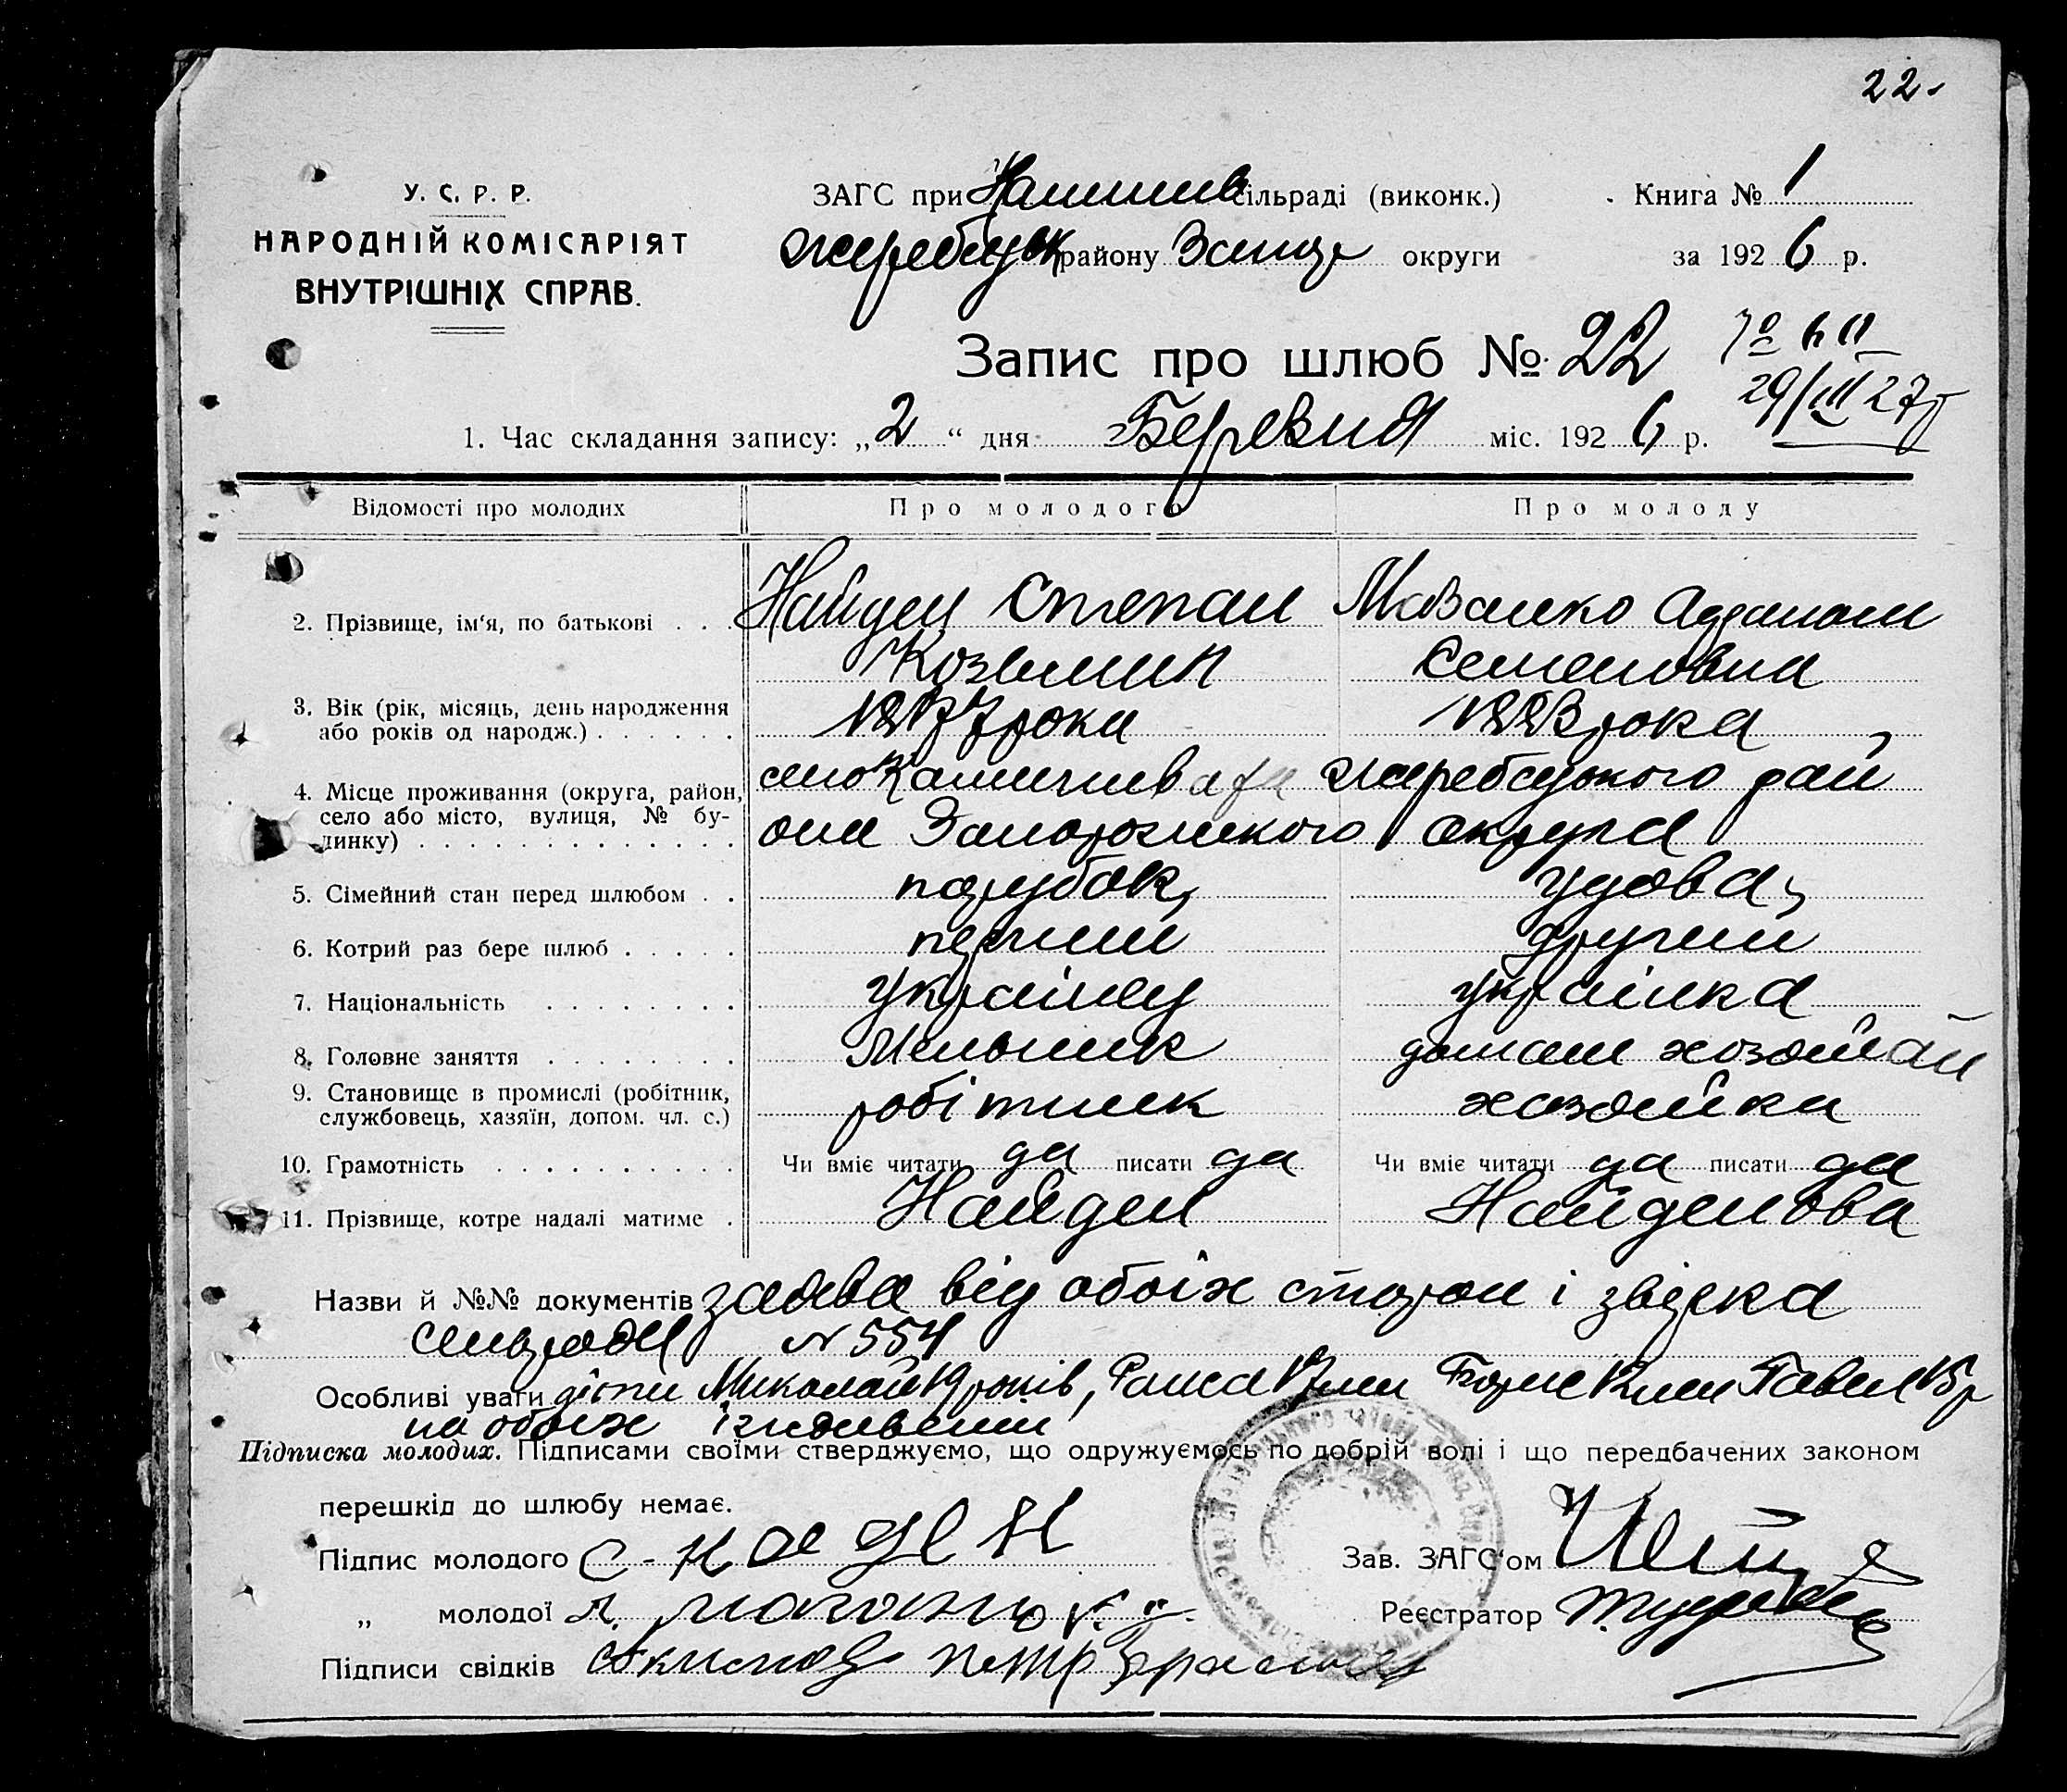 22.
У. С. Р. Р.
НАРОДНІЙ КОМІСАРІЯТ
ВНУТРІШНІХ СПРАВ.
ЗАГС при сільраді (виконк.)
Жеребцьк району Запор округи
Книга № 1
за 1926 р.
Запис про шлюб № 22
29/III 27
1. Час складання запису: „2“ дня Березня міс. 1926 р.
Відомості про молодих Про молодого Про молоду
2. Прізвище, ім'я, по батькові . . . Найден Степан Мазанко
Козьмич Семеновна
3. Вік (рік, місяць, день народження
або років од народж.) . . . . . . 1877 рока 1883 рока
4. Місце проживання (округа, район,
село або місто, вулиця, № бу-
динку) . . . . . . . . . . . . .
село Жеребецького рай
она Запорожського округа
5. Сімейний стан перед шлюбом . . парубок, удова,
6. Котрий раз бере шлюб . . . . . перший другий
7. Національність . . . . . . . українец українка
8. Головне заняття . . . . . . . Мельник домаш хозяйка
9. Становище в промислі (робітник,
службовець, хазяїн, допом. чл. с.)
робітник хозяйка
10. Грамотність . . . . . . . . . . Чи вміє читати да писати да Чи вміє читати да писати да
11. Прізвище, котре надалі матиме . Найден Найденова
Назви й №№ документів заява від обоїх сторон і звідка
сільради N 554
Особливі уваги діти Миколай 19 років, Раиса 17 Павел 15 р
на обоїх
Підписка молодих. Підписами своїми стверджуємо, що одружуємось по добрій волі і що передбачених законом
перешкід до шлюбу немає.
Підпис молодого С. Найден
„ молодої
Підписи свідків Петр
Зав. ЗАГС'ом
Реєстратор